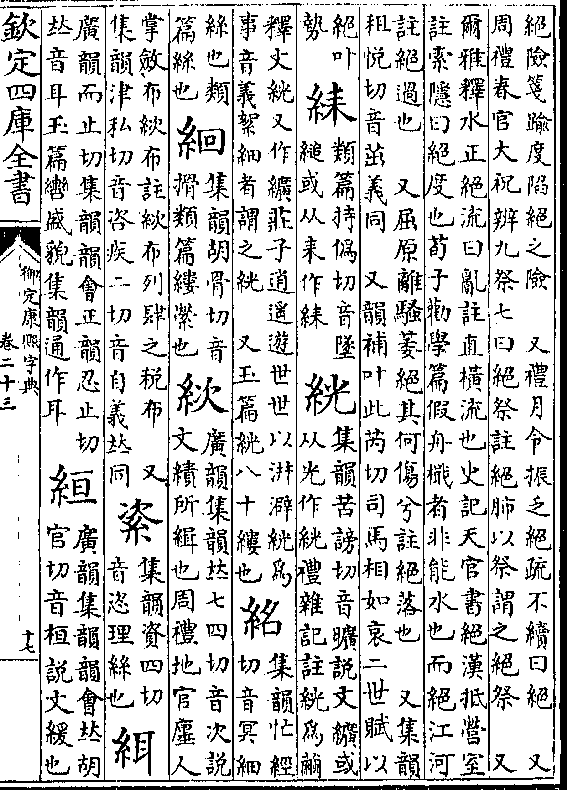 絶險箋踰度陷絶之險 又禮月令振乏絶疏不續曰絶 又
周禮春官大祝辨九祭七曰絶祭註絶肺以祭謂之絶祭 又
爾雅釋水正絶流曰亂註直橫流也史記天官書絶漢抵營室
註索隱曰絶度也荀子勸學篇假舟檝者非能水也而絶江河
註絶過也 又屈原離騷萎絶其何傷兮註絶落也 又集韻
租悅切音茁義同 又韻補叶此芮切司馬相如哀二世賦以
絶叶
勢
⿰糹来
類篇持僞切音墜
縋或从来作⿰糹来
絖
集韻苦謗切音曠說文纊或
从光作絖禮雜記註絖爲繭
釋文絖又作纊莊子逍遥遊世世以洴澼絖爲
事音義絮細者謂之絖 又玉篇絖八十縷也
⿰糹名
集韻忙經
切音冥細
絲也類
篇絲也
絗
集韻胡骨切音
搰類篇縷縈也
絘
廣韻集韻𠀤七四切音次說
文績所緝也周禮地官廛人
掌斂布絘布註絘布列肆之稅布 又
集韻津私切音咨疾二切音自義𠀤同
⿱次糸
集韻資四切
音恣理絲也
⿰糹耳
廣韻而止切集韻韻會正韻忍止切
𠀤音耳玉篇轡盛貌集韻通作耳
絙
廣韻集韻韻會𠀤胡
官切音桓說文緩也
欽定四庫全書
御定康熙字典
卷二十三
十七